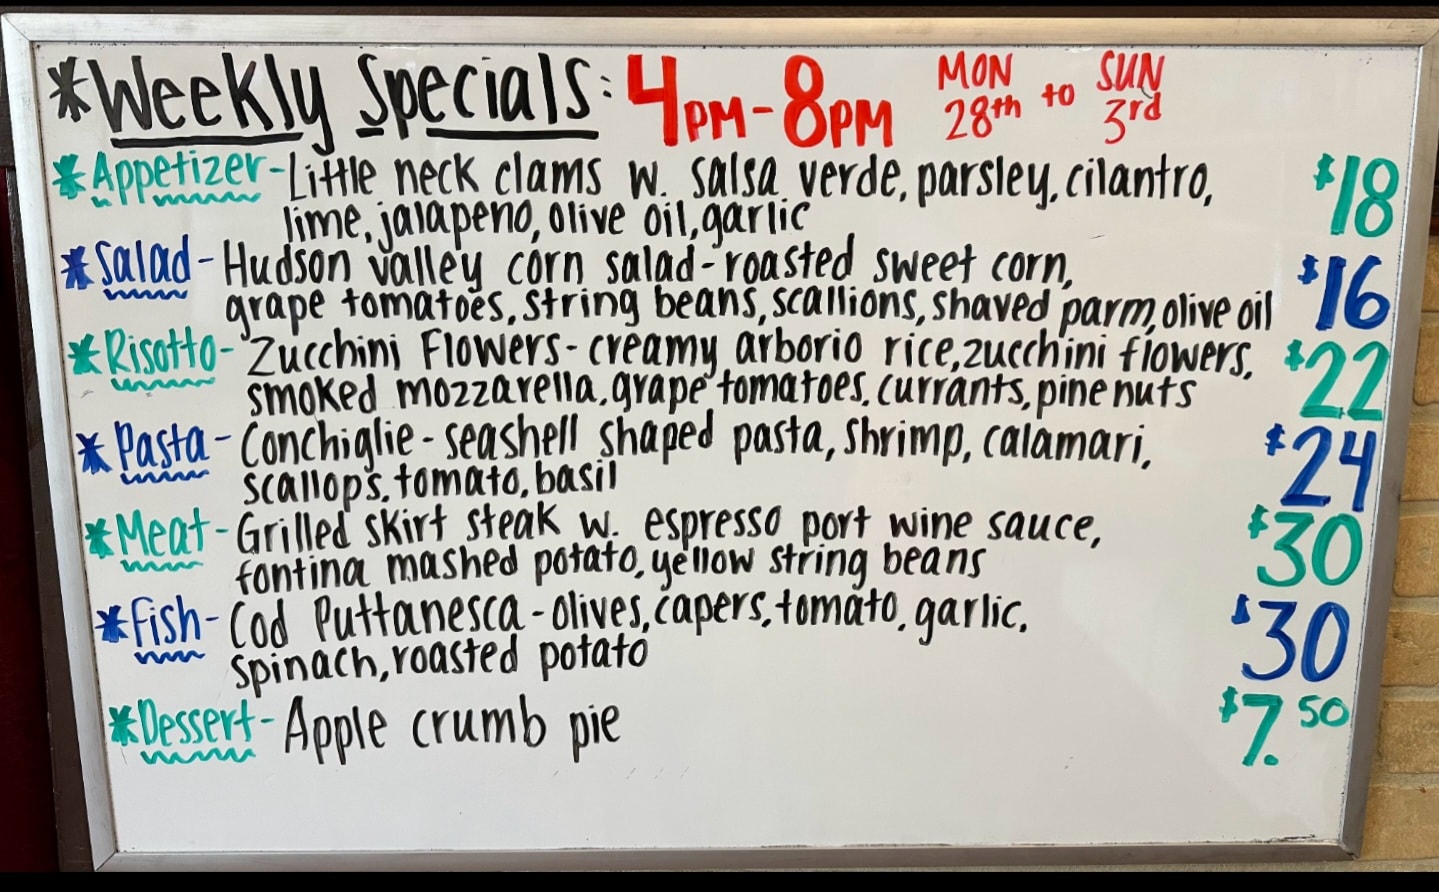 *Weekly Specials: 4PM-8PM MON 28th to SUN 3rd
*Appetizer-Little neck clams w. salsa verde, parsley, cilantro, $18
lime, jalapeno, olive oil, garlic
*Salad-Hudson valley corn salad-roasted sweet corn, $16
grape tomatoes, string beans, scallions, shaved parm, olive oil
*Risotto-Zucchini Flowers-creamy arborio rice, zucchini flowers, $22
smoked mozzarella, grape tomatoes, currants, pine nuts
*Pasta-Conchiglie-seashell shaped pasta, shrimp, calamari, $24
scallops, tomato, basil
*Meat-Grilled skirt steak w. espresso port wine sauce, $30
fontina mashed potato, yellow string beans
*Fish-Cod Puttanesca-olives, capers, tomato, garlic, $30
spinach, roasted potato
*Dessert-Apple crumb pie $7.50